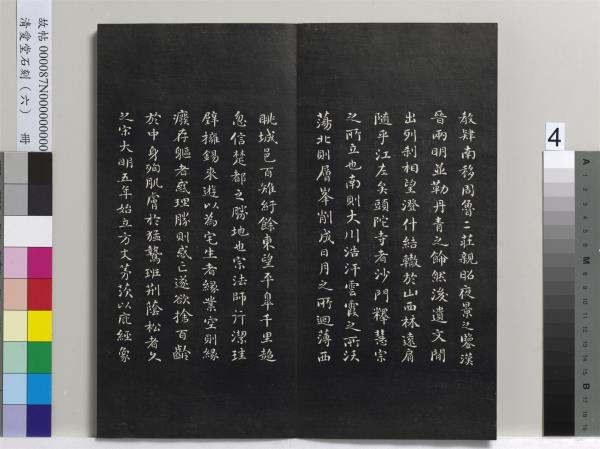 教肄南移周魯二莊親昭夜景之鑒漢
晉兩明並勒丹青之飾然後遺文間
出列刹相望澄什結轍於山西林遠肩
隨乎江左矣頭陀寺者沙門釋慧宗
之所立也南則大川浩汗雲霞之所沃
蕩北則層峯削成日月之所迴薄西
眺城邑百雉紆餘東望平皐千里超
忽信楚都之勝地也宗法師行潔珪
璧擁錫來遊以為宅生者緣業空則緣
癈存軀者惑理勝則惑亡遂欲捨百齡
於中身殉肌膚於猛鷙班荆蔭松者久
之宋大明五年始立方丈茅茨以庇經象
故帖000087N000000000
清愛堂石刻（六） 冊
4